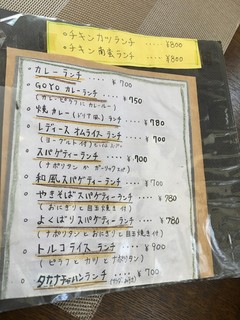 ○チキンカツランチ ････ ¥800
○チキン南蛮ランチ ････ ¥800
○カレーランチ ････ ¥700
○GOYO カレーランチ ････ ¥750
(カレーピラフにカレールー)
○焼カレーランチ ････ ¥780
○レディース オムライス ランチ ････ ¥700
(ヨーグルト付
○スパゲティーランチ ････ ¥700
(ナポリタン か ガーリック
○和風スパゲティーランチ ････ ¥700
○やきそばスパゲティーランチ ････ ¥780
(おにぎりと目玉焼き付)
○よくばりスパゲティーランチ ････ ¥780
(ナポリタンとおにぎりと目玉焼き付)
○トルコライス ランチ ････ ¥900
(ピラフとカツとナポリタン)
ランチ ････ ¥700